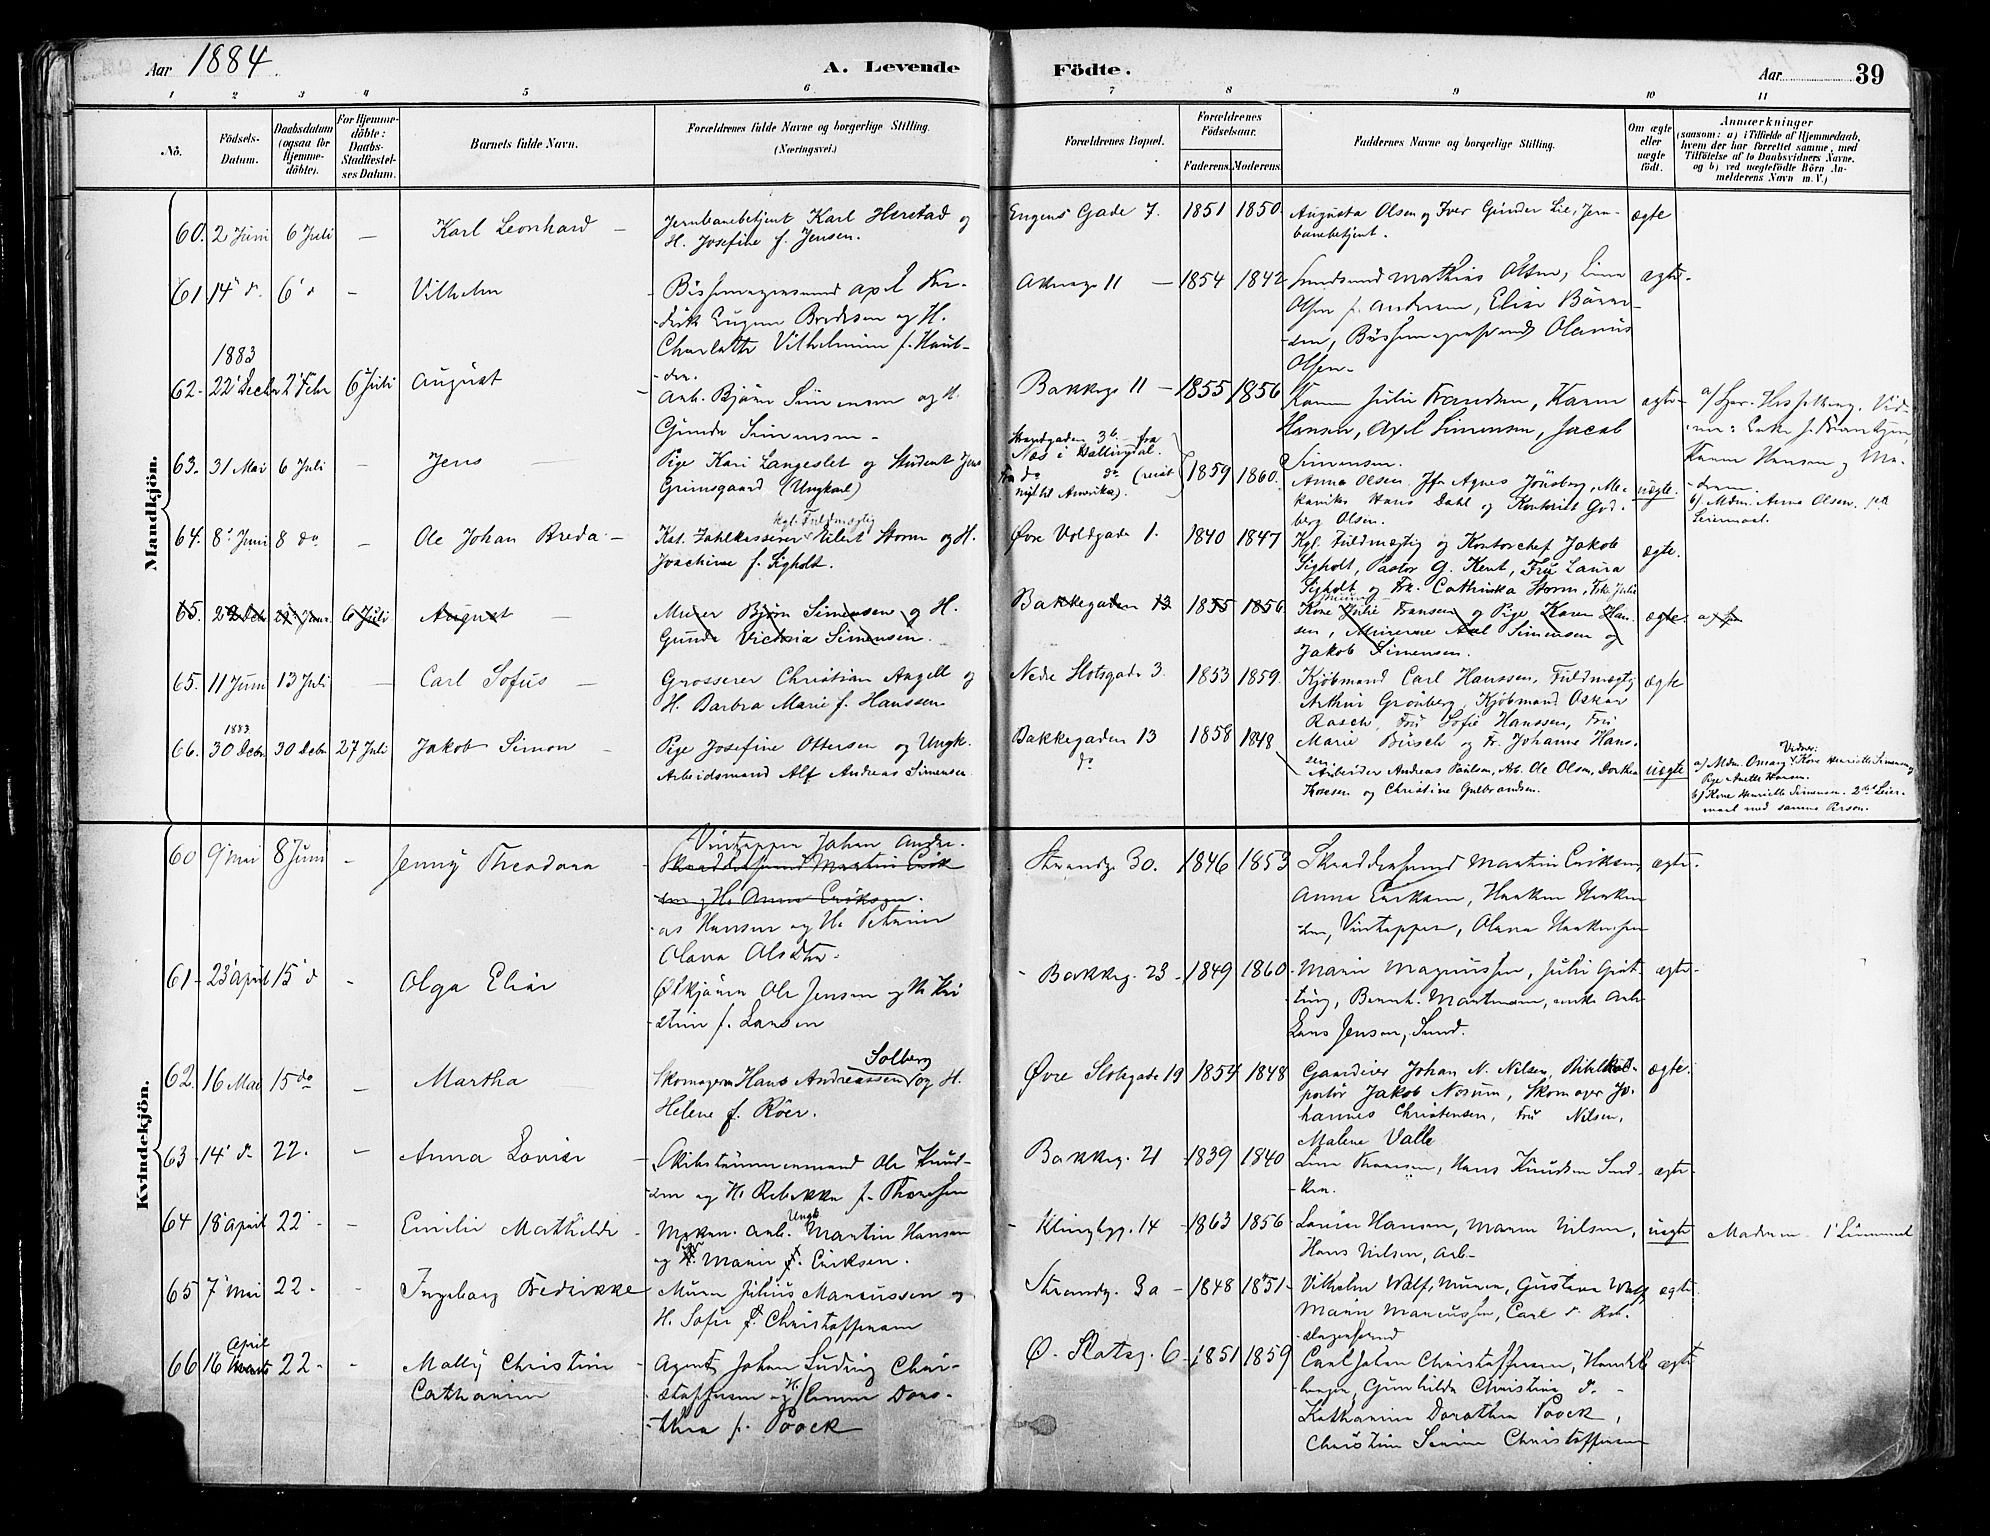 Aar 1884
A. Levende Födte.
Aar 39
1 2 3 4 5 6 7 8 9 10 11
Nô.
Födsels-Datum.
Daabsdatum (ogsaa for Hjemmedöbte).
For Hjemmedöbte: Daabs-Stadfæstelses Datum.
Barnets fulde Navn.
Forældrenes fulde Navne og borgerlige Stilling. (Næringsvei.)
Forældrenes Bopæl.
Forældrenes Födselsaar.
Faderens. Moderens.
Faddernes Navne og borgerlige Stilling.
Om ægte eller uægte födt.
Anmærkninger
(saasom: a) i Tilfælde af Hjemmedaab, hvem der har forrettet samme, med Tilföielse af to Daabsvidners Navne, og b) ved uægtefödte Börn Anmelderens Navn m. V.)
Mandkjön.
60. 2 Juni 6 Juli — Karl Leonhard — Jernbanebetjent Karl Herstad og
H. Josefine f. Jensen.
Engens Gade 7. 1851 1850. Augusta Olsen og Iver Gunder Lie, Jern-
banebetjent. ægte
61 14' d. 6' d — Vilhelm — Bøssemagersvend Axel
Eugen Bredesen og H.
Charlotte Vilhelmine f.
11 — 1854 1842 Svendsend Mathias Olsen, Lina
Olsen f. Andersen, Elise
Bøssemagersvend Olanus
Olsen. ægte
1883
62. 22' Decbr 2' Febr 6' Juli August — Arb. Bjørn Simensen og H.
Gunda Simensen.
Bakkeg. 11 — 1855 1856 Karen Julie Frandsen, Karen
Hansen, Axel Simensen, Jacob
Simensen. ægte
Karen Hansen og
63. 31 Mai 6 Juli — Jens — Pige Kari Langeslet og Student Jens
Grimsgaard (Ungkarl)
Strandgaden 3b. fra
Næs i Hallingdal.
Fra do do (reist
nu til Amerika). 1859 1860. Anna Olsen, Jfr Agnes Jönsberg, Me-
kanikus Hans Dahl og Kontorist God-
berg Olsen. uægte.
b) Mdm. Anna Olsen. 1ste
Leiermaal.
64. 8' Juni 8 do — Ole Johan Breda — kgl. Fuldmægtig
Kst. Zahlkasserer Eilert Storm og H.
Joachime f. Sigholt.
Øvre Voldgade 1. 1840 1847 Kgl. Fuldmægtig og Kontorchef Jakob
Sigholt, Pastor G. Kent, Frü Laura
Sigholt og Fr. Cathinka Storm, Frk Julie ægte.
65. 22 Dcb 6 Juli August — Murer Bjørn Simensen og H.
Gunda Victoria Simensen.
Bakkegaden 13 1855 1856 Kone Julie Fransen og Pige Karen Han-
sen, Murerne Axel Simensen og
Jakob Simensen. ægte.
65. 11 Juni 13 Juli — Carl Sofus — Grosserer Christian Angell og
H. Barbra Marie f. Hanssen
Nedre Slotsgade 3. 1853 1859. Kjöbmand Carl Hanssen, Fuldmægtig
Arthur Grönberg, Kjöbmand Oskar
Rasch, Frü Sofie Hanssen, Frü
Marie Büsch og Fr. Johanne Hans-
sen ægte
1883
66. 30 Decbr 30 Decbr 27 Juli Jakob Simon — Pige Josefine Ottersen og Ungk.
Arbeidsmand Alf Andreas Simensen.
Bakkegaden 13
do 1858 1848 Arbeider Andreas Paulsen, Arb. Ole Olsen, Dorthea
Thoresen og Christine Gulbrandsen. uægte
Vidner:
a) Mdm. Omang Kone Henriette Simensen og
Pige Anette Hansen.
b) Kone Henriette Simensen. 2det Leier-
maal med samme Person.
Kvindekjön.
60 9' Mai 8 Juni — Jenny Theodora — Vintapper Johan Andre-
Skræddersvend Martin Erik-
sen og H. Anna Eriksen.
as Hansen og H. Petrine
Olava
Strandg. 30. 1846 1853 Skræddersvend Martin Eriksen,
Anna Eriksen, Haaken Haaken-
sen, Vintapper, Olava Haakensen ægte.
61 23' April 15' d — Olga Elise Ølkjörer Ole Jensen og H. Kri-
stine f. Larsen
Bakkeg. 23 1849 1860 Marie Magnussen, Julie
Bernh. Martinsen, enke
Lars Jensen, Svend. ægte
62. 16 Mai 15 do — Martha Solberg
Skomager Hans Andreassen og H.
Helene f. Röer.
Øvre Slotsgade 19 1857 1848 Gaardeier Johan N. Nilsen, Bibelkol-
portör Jakob Nosum, Skomager Jo-
hannes Christensen, Frü Nilsen,
Malene Valle ægte.
63 14' d. 22. — Anna Lovise — Skibstömmermand Ole Knud-
sen og H. Rebekka f. Thoresen
Bakkeg. 21 1839 1840 Lina Thoresen, Hans Knudsen
ægte
64 18' April 22' — Emilie Mathilde — Ungk.
Arb. Martin Hansen
og Pige Marie Eriksen.
Klingbg. 14 1863 1856 Lovise Hansen, Maren Nilsen,
Hans Nilsen, Arb. uægte Moderen
65 7' Mai 22. — Ingeborg Fredrikke Murer Julius Marcussen og
H. Sofie f. Christoffersen
Strandg. 3a 1848 1851 Vilhelm Wolf, Murer, Gustava Wolf
Marie Marcussen, Carl d. ægte
April
66 16 Marts 22 — Mally Christine
Catharina Agent Johan Ludvig Chri-
stoffersen og H. Doro-
thea f. Poock
Ø. Slotsg. 6 1851 1859 Carl Johan Christoffersen,
Gunhilda Christine d.
Katharina Dorothea Poock,
Christine Severine Christoffersen ægte